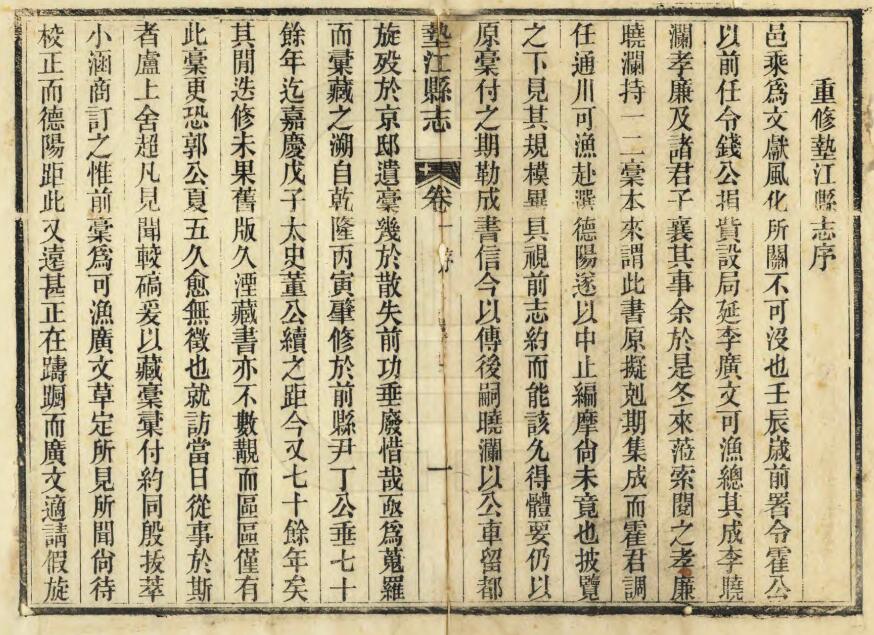 重修墊江縣志序
邑乘爲文獻風化所關不可沒也壬辰歲前署令霍公
以前任令錢公捐貲設局延李廣文可漁總其成李曉
瀾孝廉及諸君子襄其事余於是冬來蒞索閱之孝廉
曉瀾持一二稾本來謂此書原擬剋期集成而霍君調
任通川可漁赴選德陽遂以中止編摩尙未竟也披覽
之下見其規模異具視前志約而能該允得體要仍以
原稾付之期勒成書信今以傳後嗣曉瀾以公車留都
墊江縣志 卷一 序 一
旋歿於京邸遺稾幾於散失前功垂廢惜哉亟爲蒐羅
而彙藏之溯自乾隆丙寅肇修於前縣尹丁公垂七十
餘年迄嘉慶戊子太史董公續之距今又七十餘年矣
其閒迭修未果舊版久湮藏書亦不數覯而區區僅有
此稾更恐郭公夏五久愈無徵也就訪當日從事於斯
者盧上舍超凡見聞較碻爰以藏稾彙付約同殷拔萃
小涵商訂之惟前稾爲可漁廣文草定所見所聞尙待
校正而德陽距此又遠甚正在躊躕而廣文適請假旋